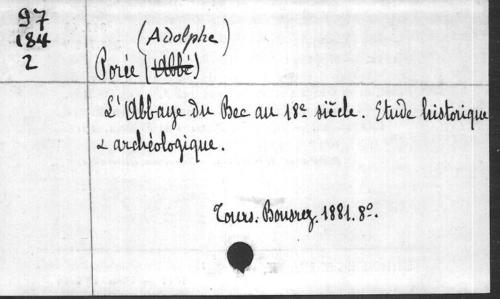 97
184
2
(Adolphe)
Porée (Abbé)
L'Abbaye du Bec au 18e siècle. Etude historique
& archéologique.
Tours. Bousrez. 1881. 8o.